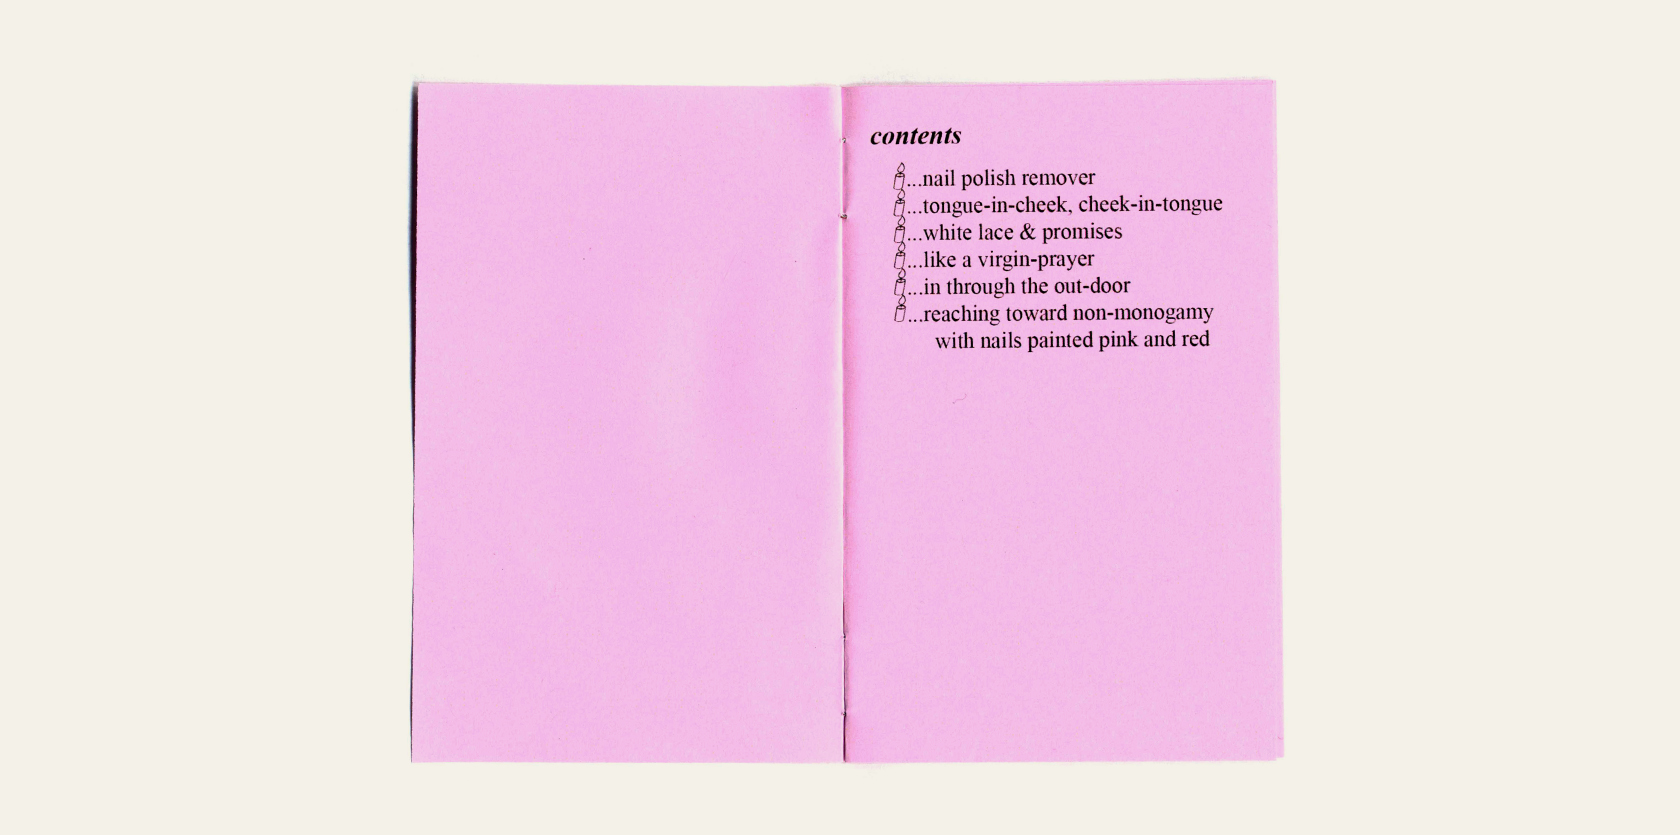 contents
...nail polish remover
...tongue-in-cheek, cheek-in-tongue
...white lace & promises
...like a virgin-prayer
...in through the out-door
...reaching toward non-monogamy
with nails painted pink and red